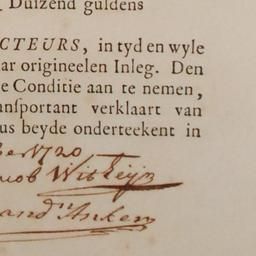 Duizend guldens
CTEURS, in tyd en wyle
ar origineelen Inleg. Den
e Conditie aan te nemen,
anſportant verklaart van
us beyde onderteekent in
ber 1720
cob